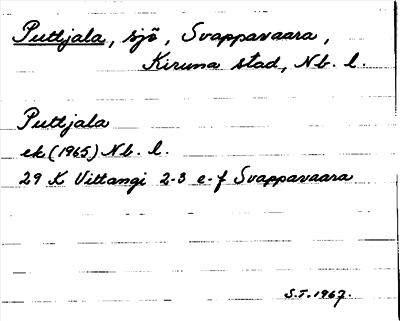 Puttjala, sjö, Svappavaara,
Kiruna stad, Nb. l.
Puttjala
ek (1965) Nb. l.
29 K Vittangi 2-3 e-f Svappavaara
S.T. 1967.